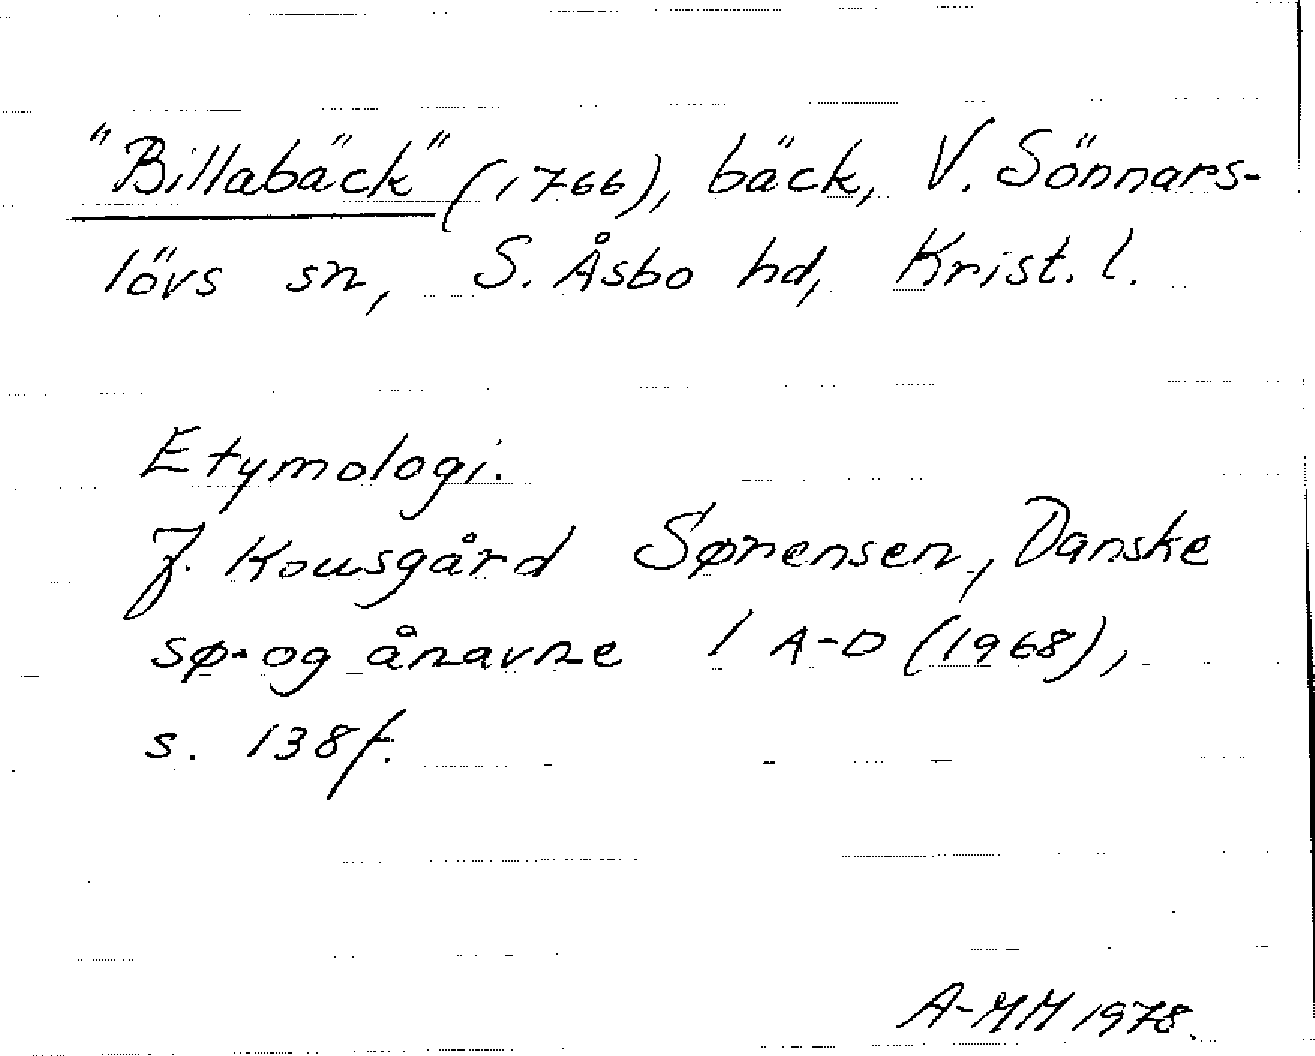 "Billabäck" (1766), bäck, V. Sönnars-
lövs sn, S. Åsbo hd, Krist. l.
Etymologi.
J. Kousgård Sørensen, Danske
sø- og ånavne 1 A-D (1968),
s. 138f.
A-MM 1978.